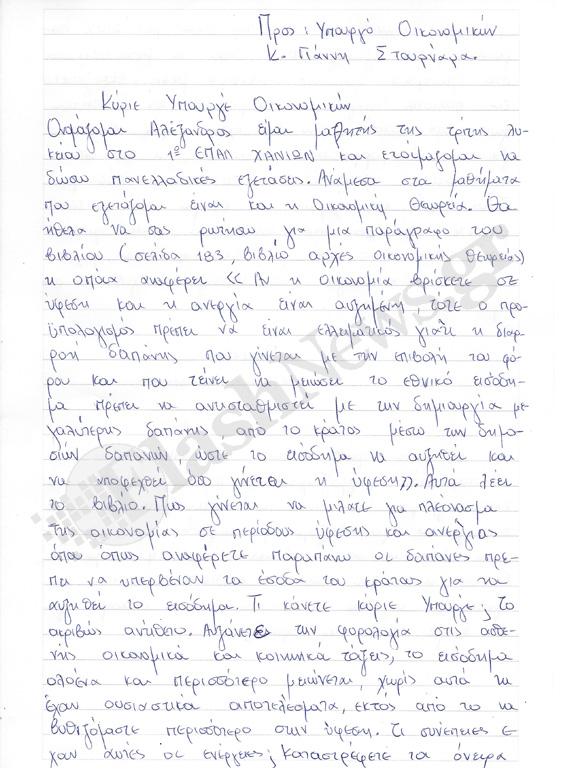 Προς: Υπουργό Οικονομικών
κ. Γιάννη Στουρνάρα.
Κύριε Υπουργέ Οικονομικών
Ονομάζομαι Αλέξανδρος είμαι μαθητής της τρίτης λυ-
κείου στο 1ο ΕΠΑΛ ΧΑΝΙΩΝ και ετοιμάζομαι να
δώσω πανελλαδικές εξετάσεις. Ανάμεσα στα μαθήματα
που εξετάζομαι είναι και η Οικονομική Θεωρεία. Θα
ήθελα να σας ρωτήσω για μια παράγραφο του
βιβλίου (σελίδα 183, βιβλίο αρχές οικονομικής θεωρείας)
η οποία αναφέρει << Αν η οικονομία βρίσκετε σε
ύφεση και η ανεργία είναι αυξημένη, τότε ο προ-
ϋπολογισμός πρέπει να είναι ελλειματικός γιατί η διαρ-
ροή δαπάνης που γίνεται με την επιβολή του φό-
ρου και που τείνει να μειώσει το εθνικό εισόδη-
μα πρέπει να αντισταθμιστεί με την δημιουργία με-
γαλύτερης δαπάνης από το κράτος μέσω των δημο-
σιών δαπανών ώστε το εισόδημα να αυξηθεί και
να υποφερχθεί όσο γίνεται η ύφεση>>. Αυτά λέει
το βιβλίο. Πως γίνεται να μιλάτε για πλεόνασμα
της οικονομίας σε περιόδους ύφεσης και ανεργίας
όπου όπως αναφέρετε παραπάνω οι δαπάνες πρέ-
πει να υπερβέναν τα έσοδα του κράτους για να
αυξηθεί το εισόδημα. Τι κάνετε κύριε Υπουργέ; το
ακριβώς αντίθετο. Αυξάνετε την φορολογία στις ασθε-
νής οικονομικά και κοινωνικά τάξεις, το εισόδημα
ολοένα και περισσότερο μειώνεται, χωρίς αυτά να
έχουν ουσιαστικά αποτελέσματα, εκτός από το να
βυθιζόμαστε περισσότερο στην ύφεση. Τι συνέπειες έ-
χουν αυτές οι ενέργειες; Καταστρέφετε τα όνειρα
FlashNews.gr